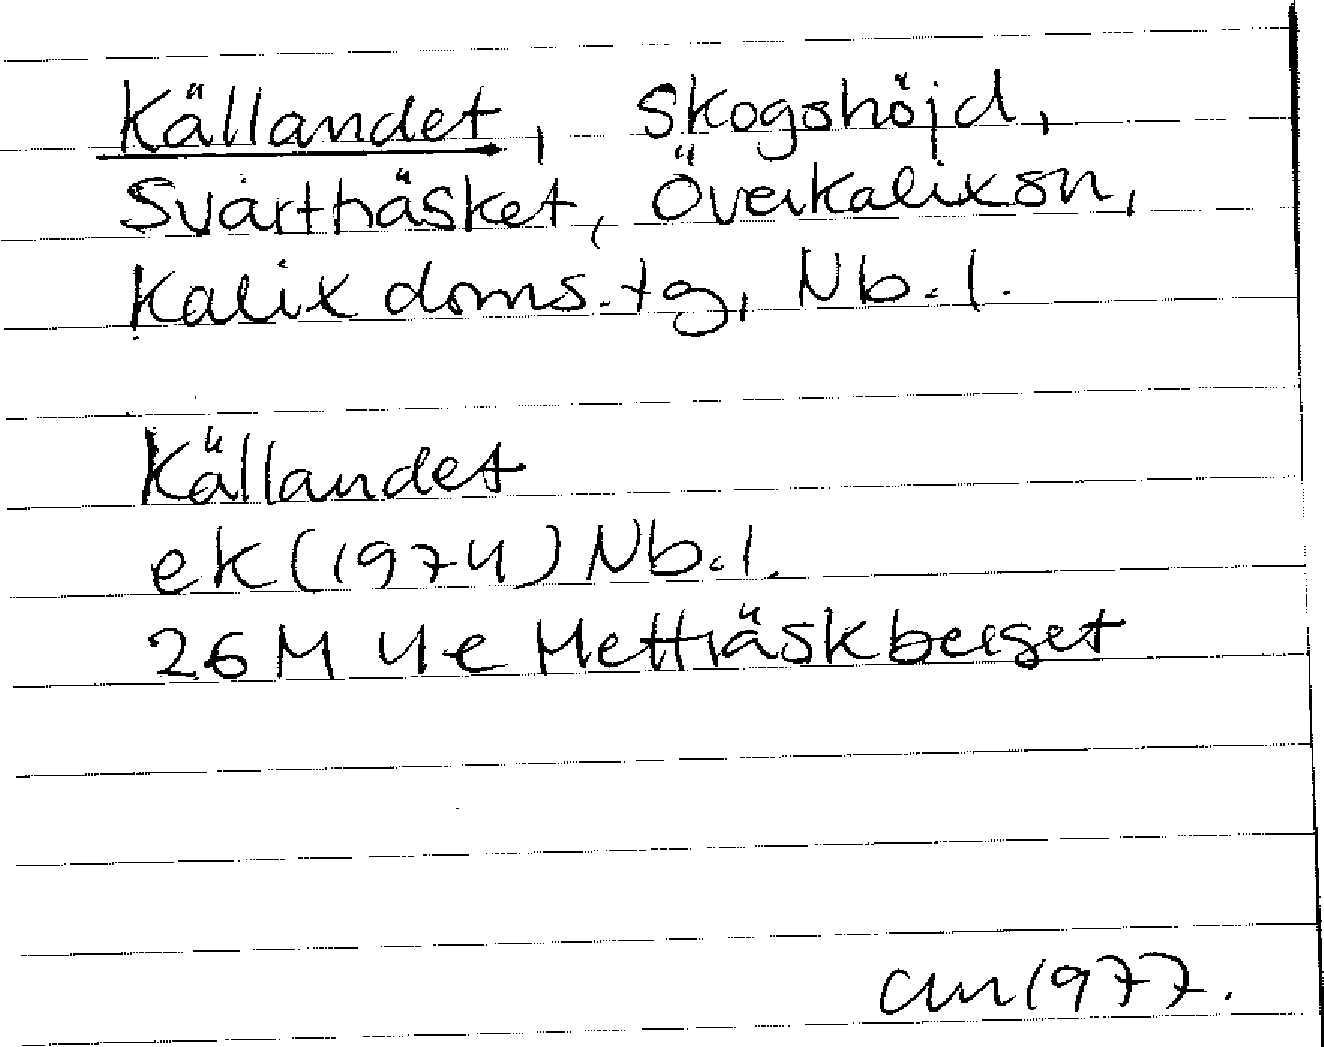 Källandet, Skogshöjd,
Svartträsket, Överkalix sn,
Kalix doms.tg, Nb.l.
Källandet
ek (1974) Nb.l.
26 M 4e Metträskberget
1977.